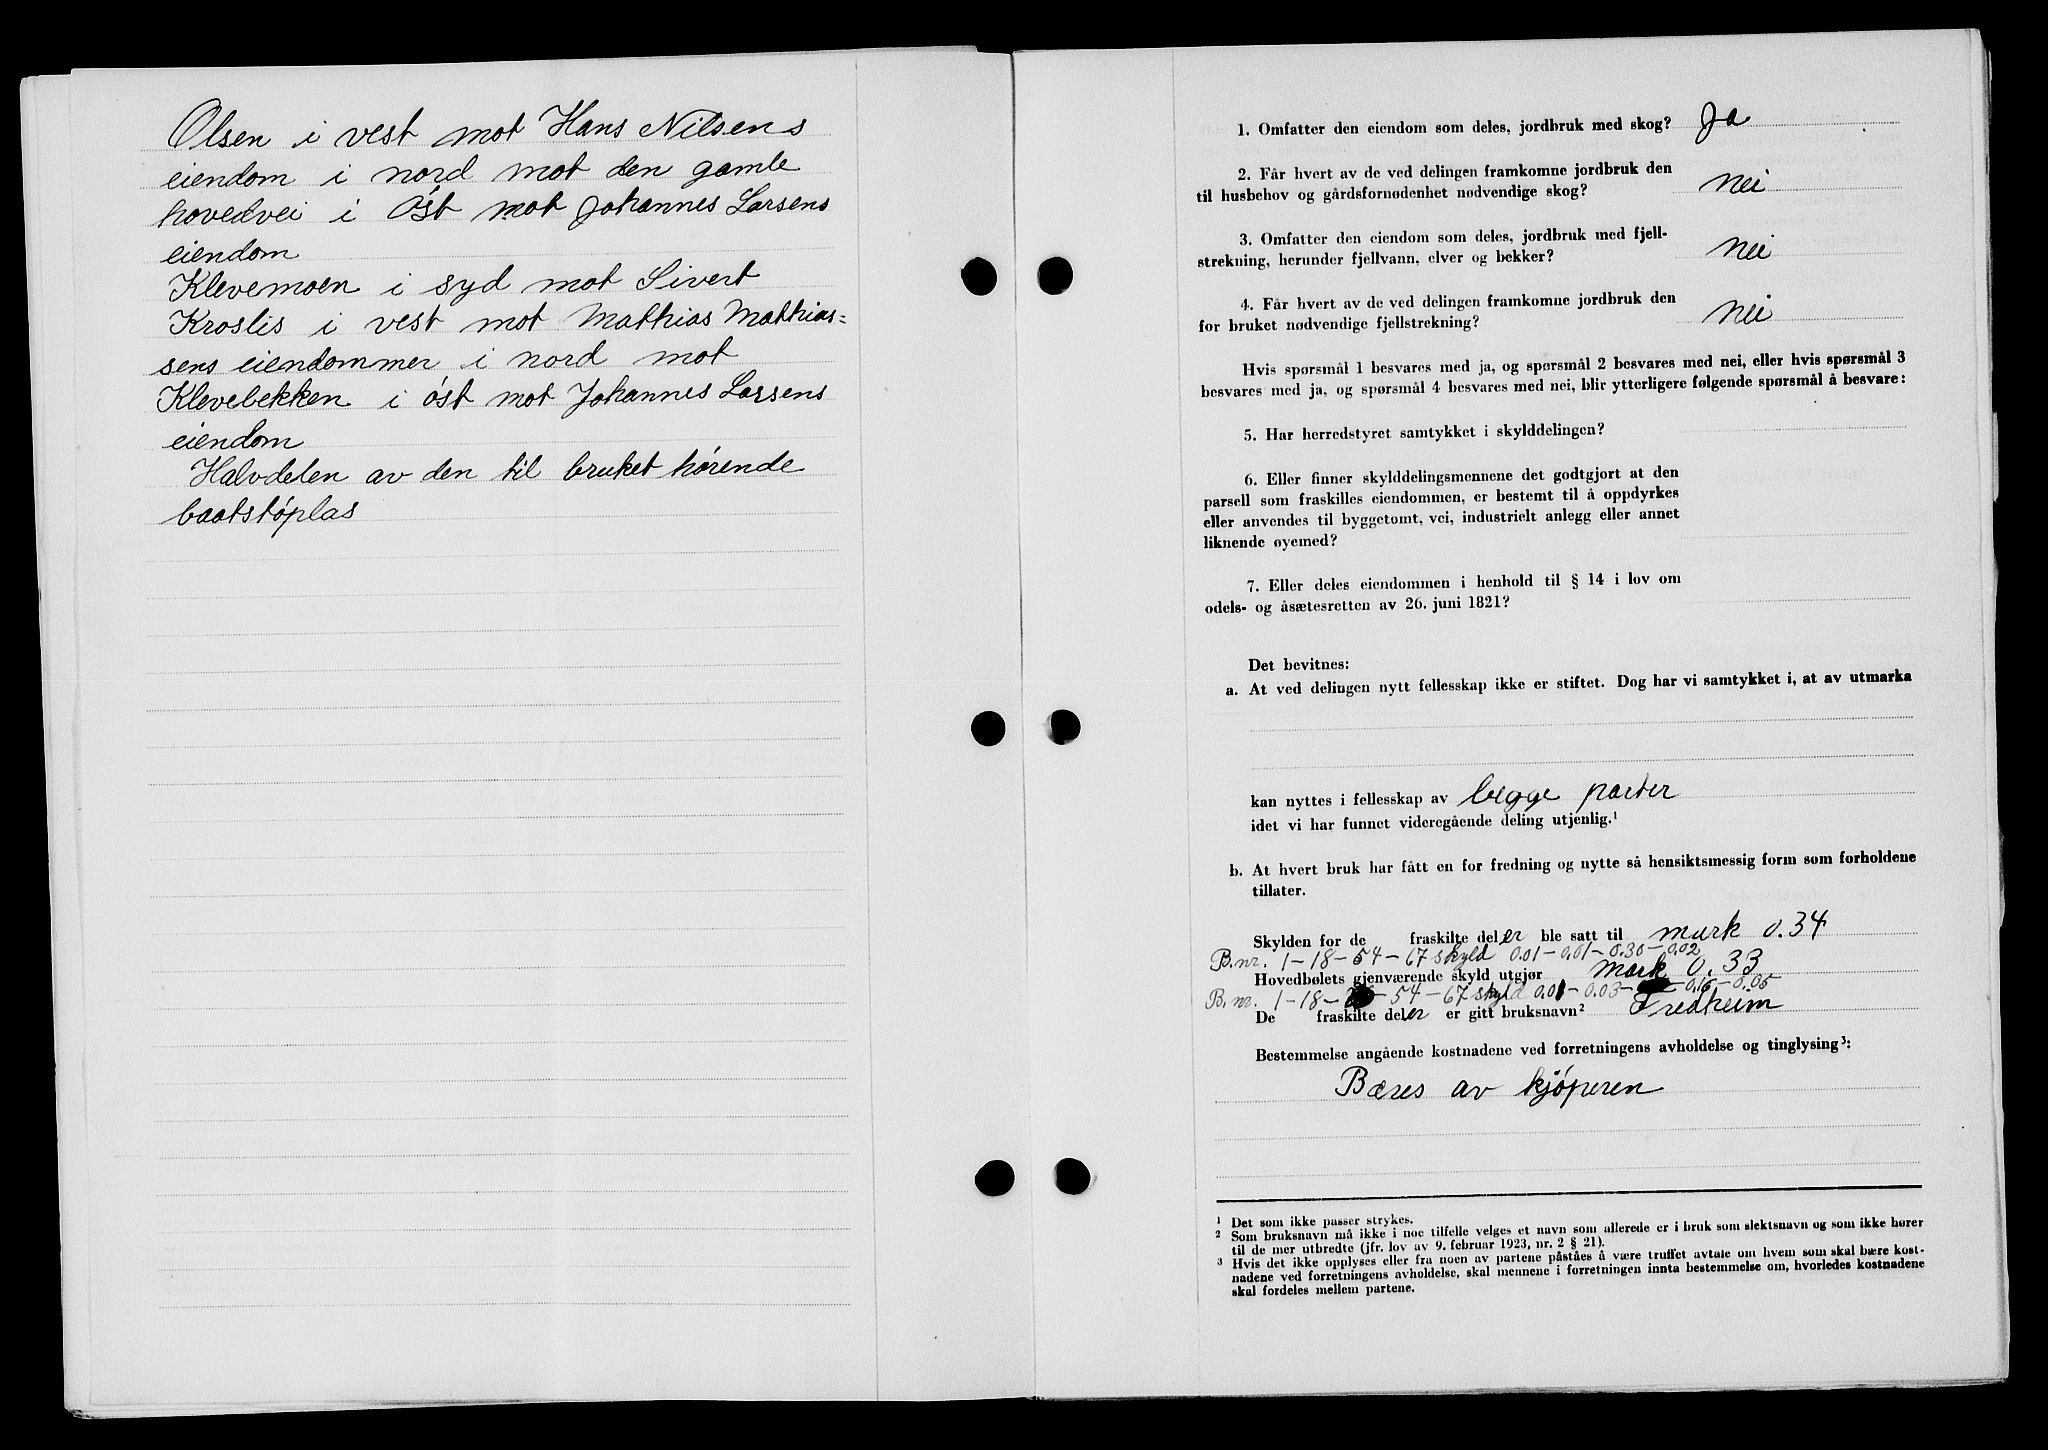 Olsen i vest mot Hans Nilsens
eiendom i nord mot den gamle
hovedvei i Øst mot Johannes Larsens
eiendom
Klevemoen i syd mot Sivert
Kroslis i vest mot Mathias Mathias=
sens eiendommer i nord mot
Klevebekken i øst mot Johannes Larsens
eiendom
Halvdelen av den til bruket hørende
baatstøplas
1. Omfatter den eiendom som deles, jordbruk med skog? Ja
2. Får hvert av de ved delingen framkomne jordbruk den
til husbehov og gårdsfornødenhet nødvendige skog? Nei
3. Omfatter den eiendom som deles, jordbruk med fjell-
strekning, herunder fjellvann, elver og bekker? Nei
4. Får hvert av de ved delingen framkomne jordbruk den
for bruket nødvendige fjellstrekning? Nei
Hvis spørsmål 1 besvares med ja, og spørsmål 2 besvares med nei, eller hvis spørsmål 3
besvares med ja, og spørsmål 4 besvares med nei, blir ytterligere følgende spørsmål å besvare:
5. Har herredstyret samtykket i skylddelingen?
6. Eller finner skylddelingsmennene det godtgjort at den
parsell som fraskilles eiendommen, er bestemt til å oppdyrkes
eller anvendes til byggetomt, vei, industrielt anlegg eller annet
liknende øyemed?
7. Eller deles eiendommen i henhold til § 14 i lov om
odels- og åsætesretten av 26. juni 1821?
Det bevitnes:
a. At ved delingen nytt fellesskap ikke er stiftet. Dog har vi samtykket i, at av utmarka
kan nyttes i fellesskap av begge parter
idet vi har funnet videregående deling utjenlig.¹
b. At hvert bruk har fått en for fredning og nytte så hensiktsmessig form som forholdene
tillater.
Skylden for de fraskilte deler ble satt til mark 0.34
B.nr. 1-18-54-67 skyld 0.01-0.01-0.30-0.02
Hovedbølets gjenværende skyld utgjør mark 0.33
B.nr. 1-18- -54-67 skyld 0.01-0.03- -0.16-0.05
De fraskilte deler er gitt bruksnavn² Fredheim
Bestemmelse angående kostnadene ved forretningens avholdelse og tinglysing³:
Bæres av kjøperen
¹ Det som ikke passer strykes.
² Som bruksnavn må ikke i noe tilfelle velges et navn som allerede er i bruk som slektsnavn og som ikke hører
til de mer utbredte (jfr. lov av 9. februar 1923, nr. 2 § 21).
³ Hvis det ikke opplyses eller fra noen av partene påståes å være truffet avtale om hvem som skal bære kost-
nadene ved forretningens avholdelse, skal mennene i forretningen innta bestemmelse om, hvorledes kostnadene
skal fordeles mellem partene.